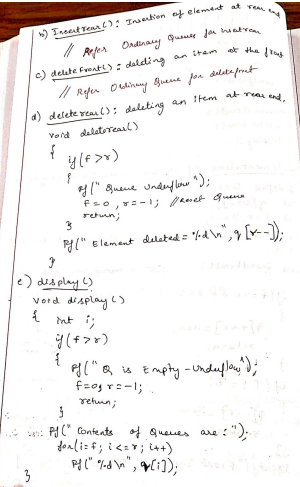 b) Insertrear(): Insertion of element at rear end
// Refer Ordinary Queues for insertrear
c) deletefront(): deleting an item at the front
// Refer Ordinary Queue for deletefront
d) deleterear(): deleting an item at rear end.
void deleterear()
{
if(f>r)
{
Pf("Queue Underflow");
f=0, r=-1; //reset Queue
return;
}
Pf("Element deleted=%d\n", q[r--]);
}
e) display()
void display()
{ int i;
if(f>r)
{
Pf("Q is Empty-Underflow");
f=0; r=-1;
return;
}
Pf("Contents of Queues are:");
for(i=f; i<=r; i++)
Pf("%d\n", q[i]);
}